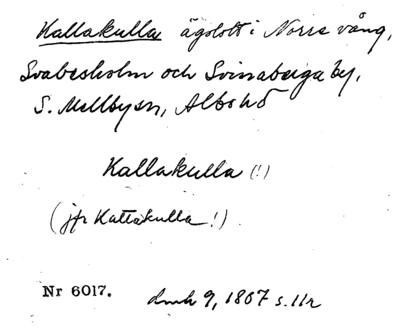 Kallakulla ägolott i Norre vång,
Svabesholm och Svinaberga by,
S. Mellbysn, Albo hd
Kallakulla (!)
(jfr Kattakulla!)
Nr 6017.
9, 1807 s. 11r